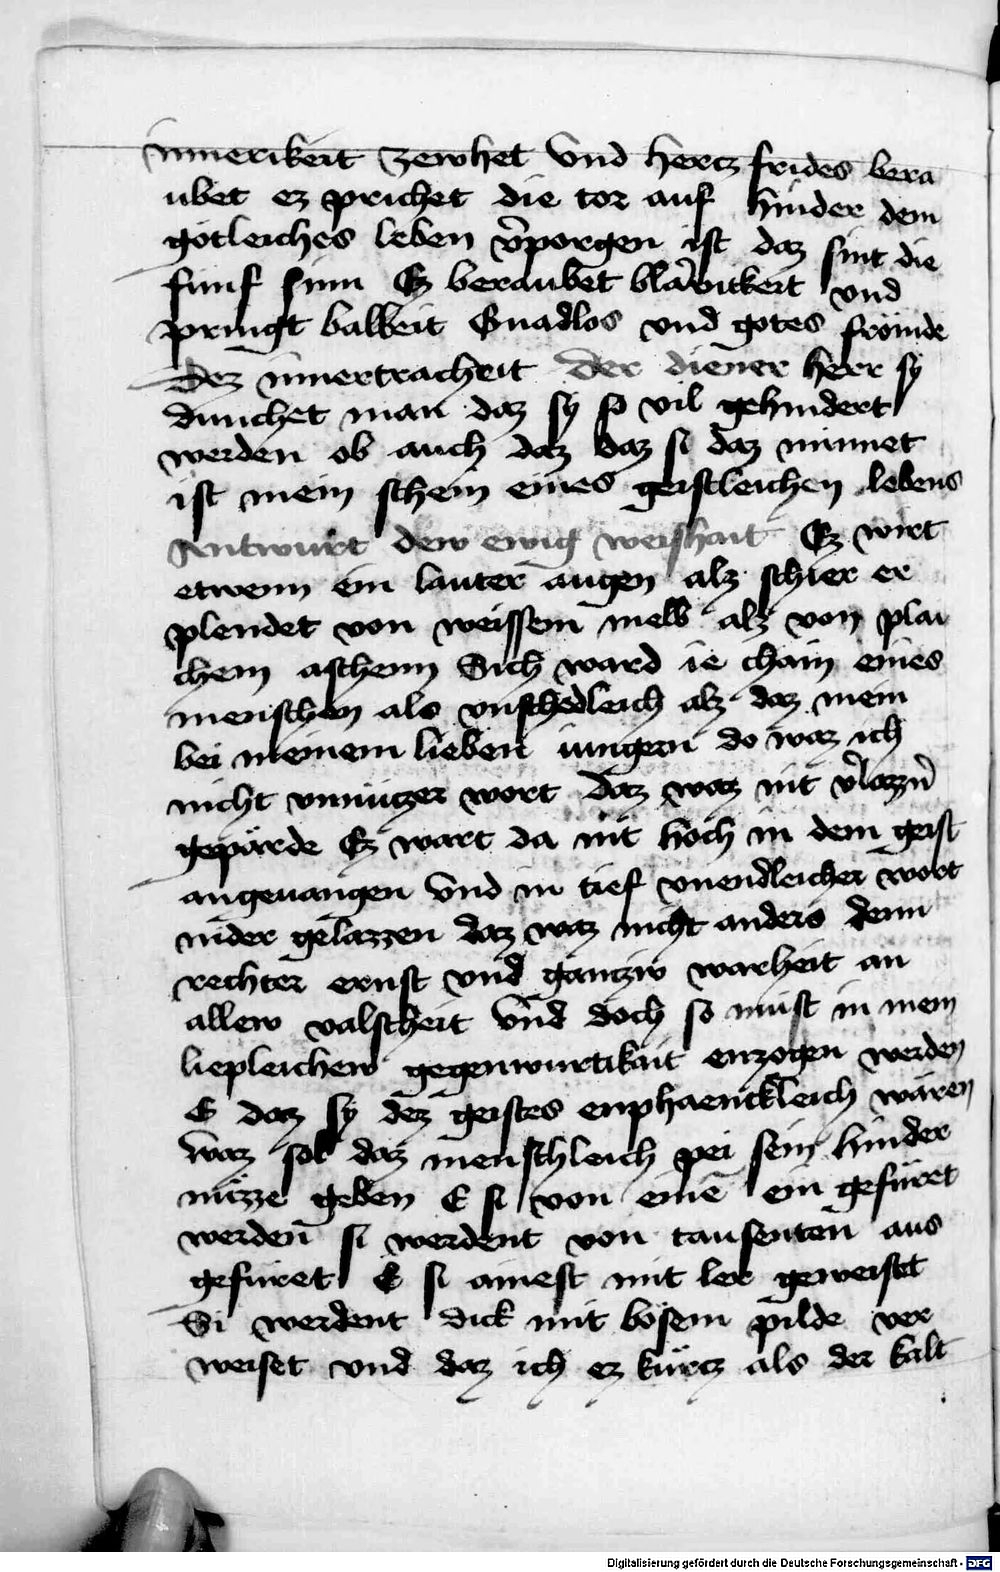 innerikeit zewhet vnd hertz frides bera
ubet ez prichet die tor auf hinder dem
götleiches leben v̉porgen ist daz sint die
fünf sinn Ez beraubet vnd
pringt balkeit Gnadlos vnd gotes frömde
Dez innertracheit Der diener herr sy
dunchet man daz sy so vil gehindert
werden ob auch daz daz si daz minnet
ist mein schein eines geistleichen lebens
Antwurt dew ewig weishait Ez wirt
etwenn ein lauter augen alz schier er
plendet von weissem melb alz von plai
chem aschenn Sich ward ie chain eines
menschen als vnschedleich alz daz mein
bei meinem lieben iungern do waz ich
nicht vnnützer wort Daz waz nit v̉lazzn̄
gepärde Ez wart da nit hoch in dem geist
angeuangen Vnd in tief vnendleicher wort
nider gelazzen daz waz nicht anders denn
rechter ernst vnd gantziv warheit an
allew valscheit Vnd doch so müst in mein
liepleichew gegenwurtikait enzogen werden
E daz sy dez geistes enphaenckleich wären
Waz sol daz menschleich pei sein hinder
nüzze geben E si von einē ein gefüret
werden si werdent von tausenten aus
gefüret E si ainest mit ler geweiset
Si werdent dick mit bösem pilde ver
weiset vnd daz ich ez kürtz als der kalt
Digitalisierung gefördert durch die Deutsche Forschungsgemeinschaft - DFG